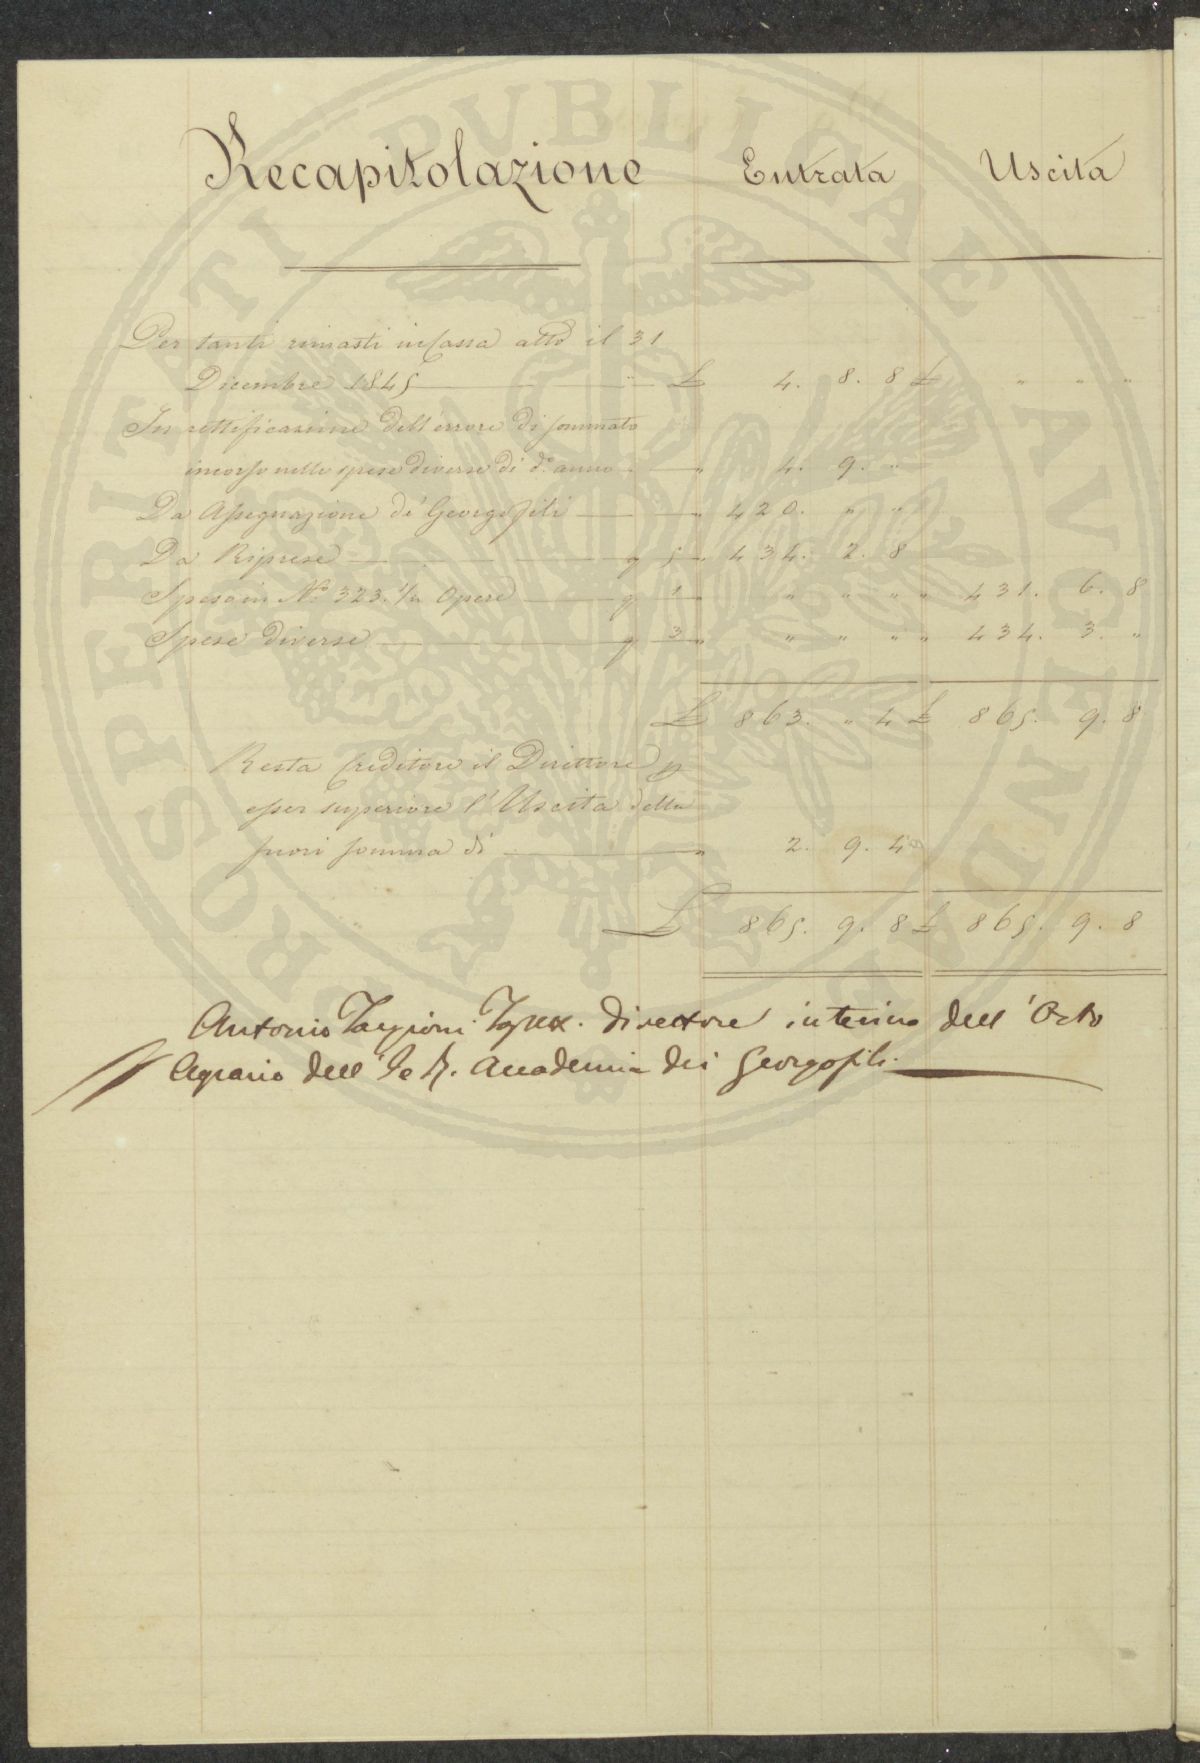 Recapitolazione Entrata Uscita
Per tanti rimasti in Cassa a tto il 31
Dicembre 1845 £ 4. 8. 8 £ " " "
In rettificazione dell'errore di sommato
incorso nelle spese diverse di do. anno " 4. 9. "
Da Assegnazione de' Georgofili " 420. " "
Da Riprese 5 " 434. 2. 8
Spesa in No. 323. 1/2 Opere 1 " " " " " 431. 6. 8
Spese diverse 3 " " " " " 434. 3. "
£ 863. " 4 £ 865. 9. 8
Resta Creditore il Direttore p
esser superiore l'Uscita della
fuori somma di " 2. 9. 4
£ 865. 9. 8 £ 865. 9. 8
Antonio Targioni Tozzetti. Direttore interino dell'Orto
Agrario dell'I e R. Accademia dei Georgofili.
PROSPERITATI PUBLICAE AUGENDAE